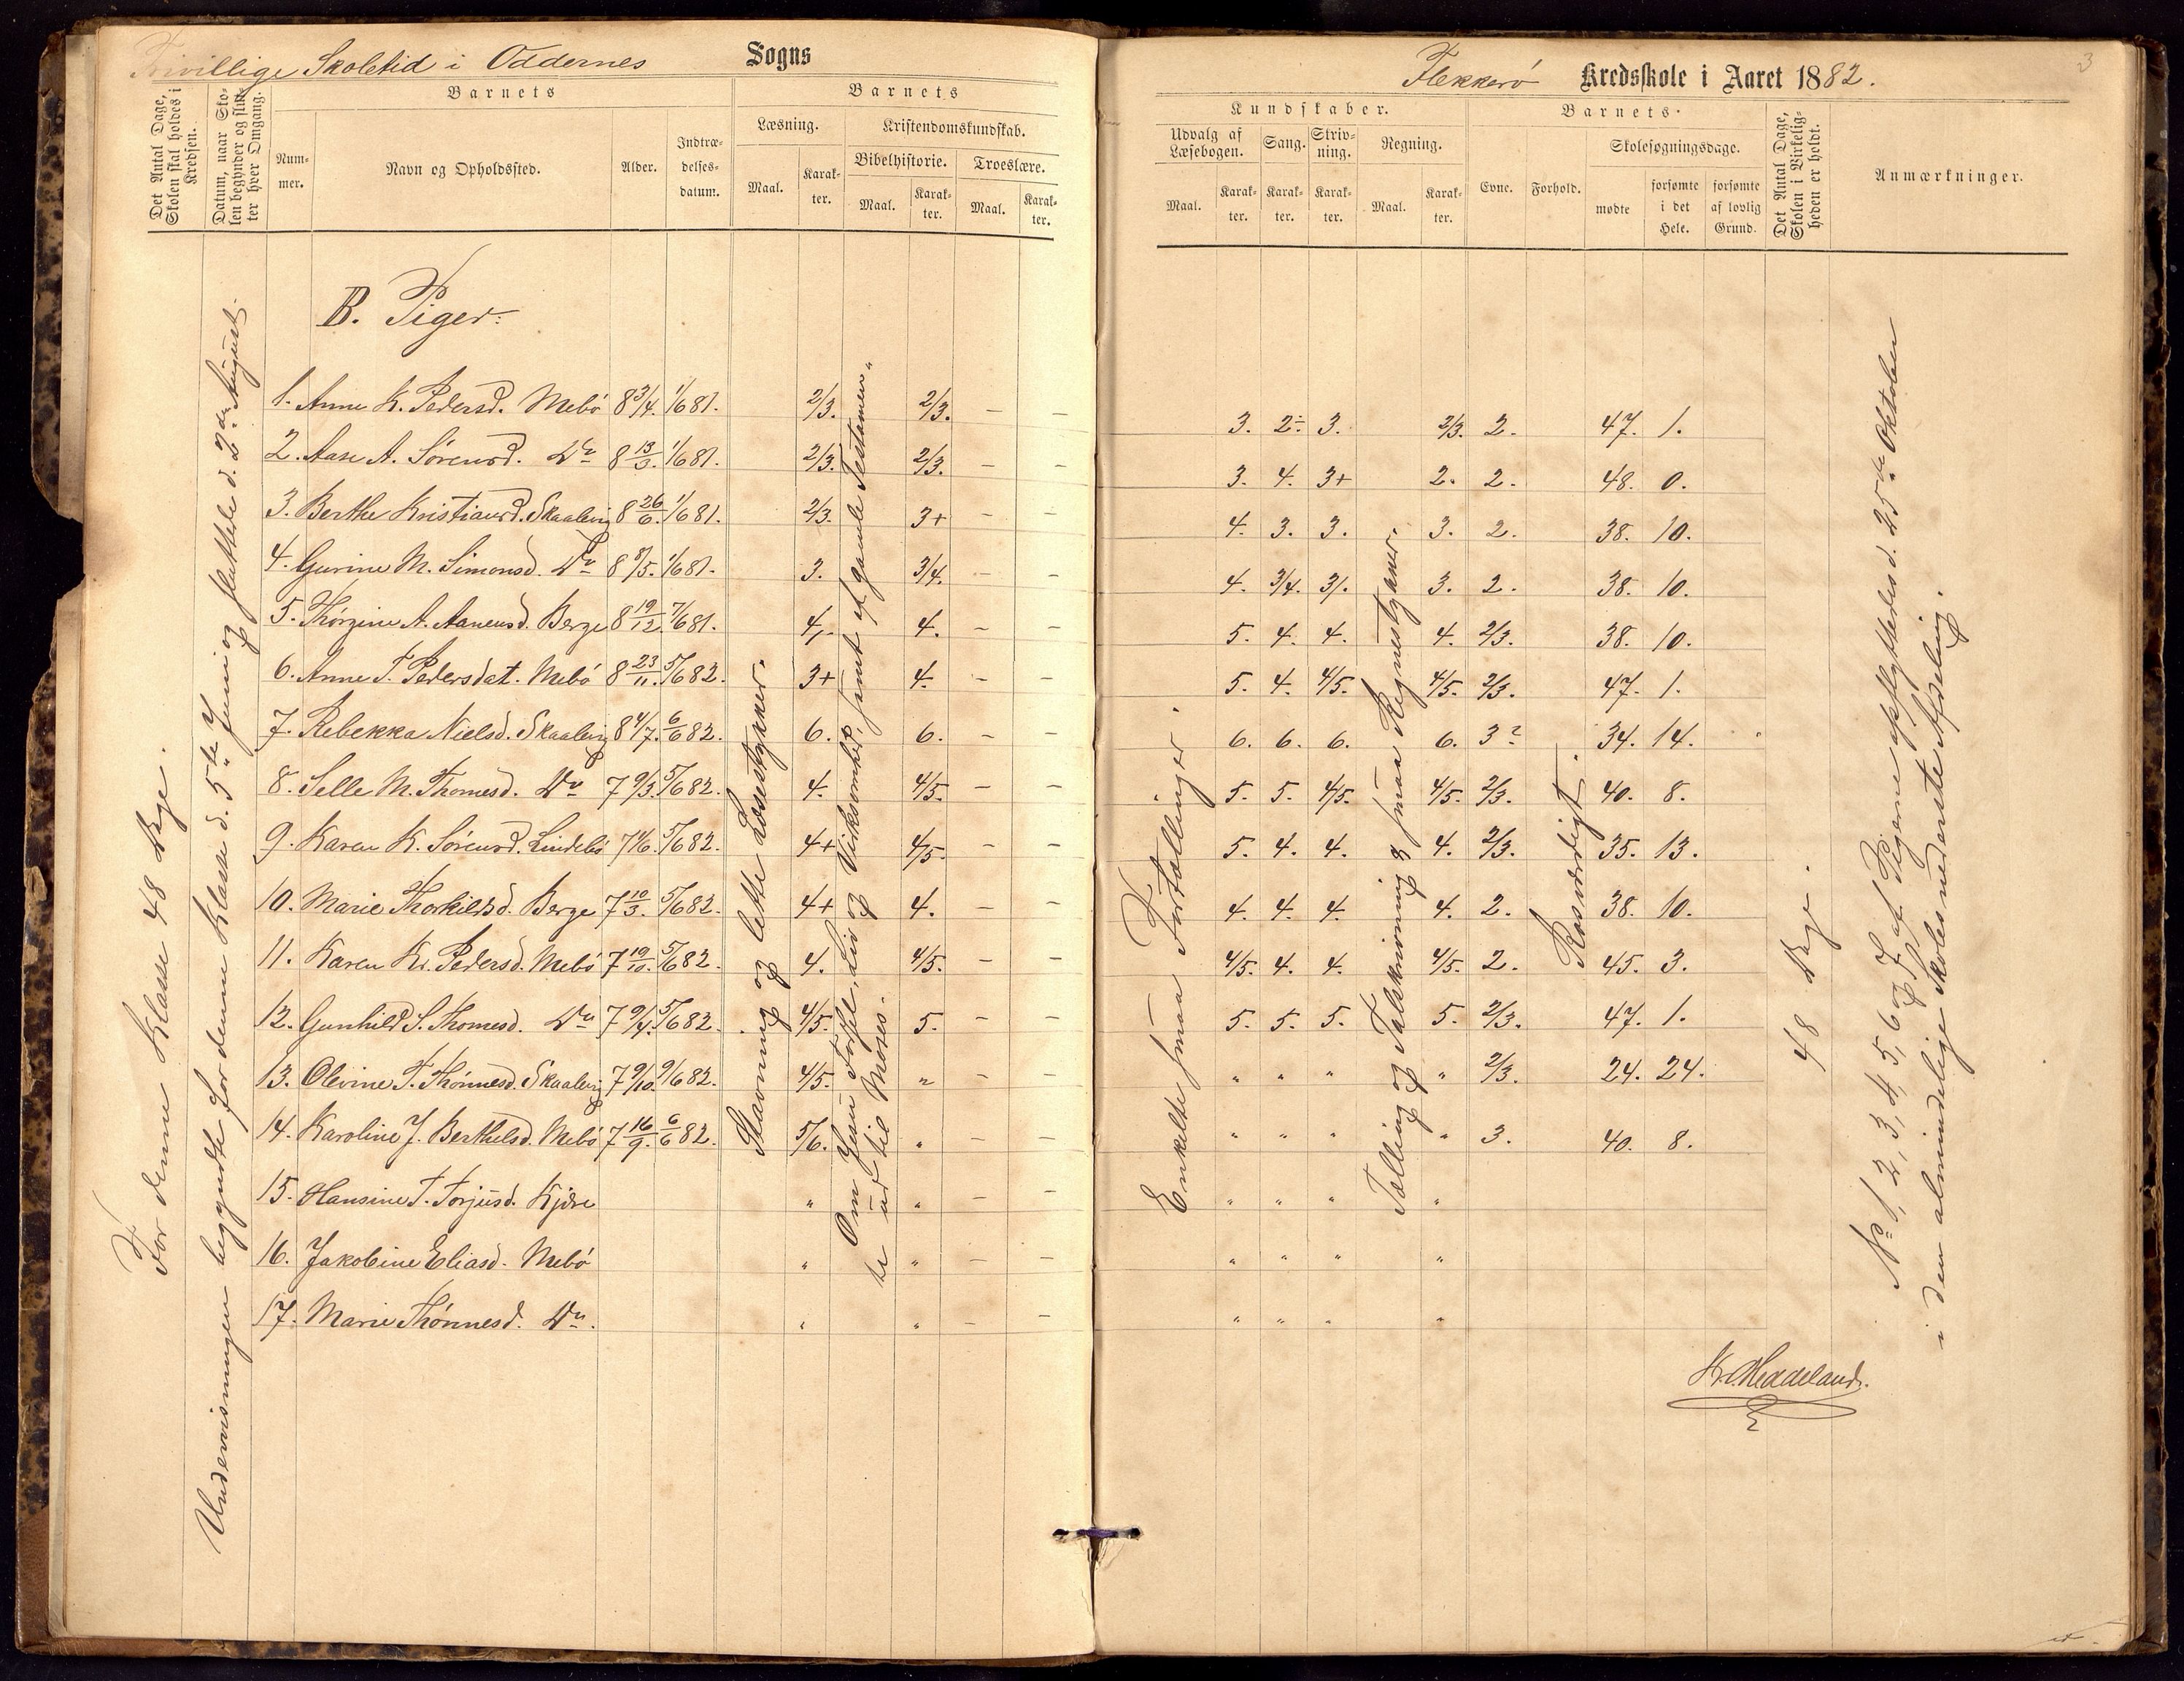 Frivillige Skoletid i Oddernes Sogns
Det Antal Dage, Skolen skal holdes i Kredsen.
Datum, naar Skolen begynder og slutter hver Omgang.
Barnets
Nummer.
Navn og Opholdssted.
Alder.
Indtrædelsesdatum.
Barnets
Læsning.
Maal.
Karakter.
Kristendomskundskab.
Bibelhistorie.
Maal.
Karakter.
Troeslære.
Maal.
Karakter.
For denne Klasse 48 Dage.
Undervisningen begyndte for denne Klasse d. 5te Juni og sluttede d. 2den August.
B. Piger:
1. Anne K. Pedersd. Mebö 8 3/4. 1/6 81. 2/3. 2/3. — —
2. Aase A. Sörensd. Do 8 13/3. 1/6 81. 2/3. 2/3. — —
3. Berthe Kristiansd. Skaalevig 8 26/6. 1/6 81. 2/3. 3+ — —
4. Gurine M. Simonsd. Do 8 8/5. 1/6 81. 3. 3/4. — —
5. Thörgine A. Aanensd. Berge 8 19/12. 7/6 81. 4,- 4. — —
6. Anne T. Pedersdat. Mebö 8 23/11. 5/6 82. 3+ 4. — —
7. Rebekka Nielsd. Skaalevig 8 4/7. 6/6 82. 6. 6. — —
8. Selle M. Thomesd. Do 7 9/3. 5/6 82. 4. 4/5. — —
9. Karen K. Sörensd. Lindebö 7 4/6. 5/6 82. 4+ 4/5. — —
10. Marie Thorkildsd. Berge 7 10/3. 5/6 82. 4+ 4. — —
11. Karen K. Pedersd. Mebö 7 19/10. 5/6 82. 4. 4/5. — —
12. Gunhild S. Thomesd. Do 7 9/4. 5/6 82. 4/5. 5. — —
13. Olevine T. Thönnesd. Skaalevig 7 9/10. 9/6 82. 4/5. " — —
14. Karoline J. Berthelsd. Mebö 7 16/9. 6/6 82. 5/6. " — —
15. Hansine T. Torjusd. Kjære " " — —
16. Jakobine Eliasd. Mebö " " — —
17. Marie Thönnesd. Do. " " — —
Stavning og lette Læsestykker.
Om Jesu Födsel, Liv og Virksomhed, samt af gamle Testamen-
te ud til Moses.
Flekkerö Kredsskole i Aaret 1882.
3
Kundskaber.
Udvalg af Læsebogen.
Maal.
Karakter.
Sang.
Karakter.
Skrivning.
Karakter.
Regning.
Maal.
Karakter.
Barnets
Evne.
Forhold.
Skolesøgningsdage.
mødte
forsømte i det Hele.
forsømte af lovlig Grund.
Det Antal Dage, Skolen i Virkeligheden er holdt.
Anmærkninger.
3. 2÷ 3. 2/3. 2. 47. 1.
3. 4. 3+ 2. 2. 48. 0.
4. 3. 3. 3. 2. 38. 10.
4. 3/4. 3/. 3. 2. 38. 10.
5. 4. 4. 4. 2/3. 38. 10.
5. 4. 4/5. 4/5. 2/3. 47. 1.
6. 6. 6. 6. 3? 34. 14.
5. 5. 4/5. 4/5. 2/3. 40. 8.
5. 4. 4. 4. 2/3. 35. 13.
4. 4. 4. 4. 2. 38. 10.
4/5. 4. 4. 4/5. 2. 45. 3.
5. 5. 5. 5. 2/3. 47. 1.
" " " " 2/3. 24. 24.
" " " " 3. 40. 8.
" " " "
" " " "
" " " "
Enkelte smaa Fortællinger.
Tælling og Talskrivning & smaa Regnestykker.
Rosværdigt.
48 Dage.
No 1, 2, 3, 4, 5, 6 og 7 af Pigerne opflyttedes d. 25de Oktober
i den almindelige Skoles nederste Afdeling.
K. Heddeland.